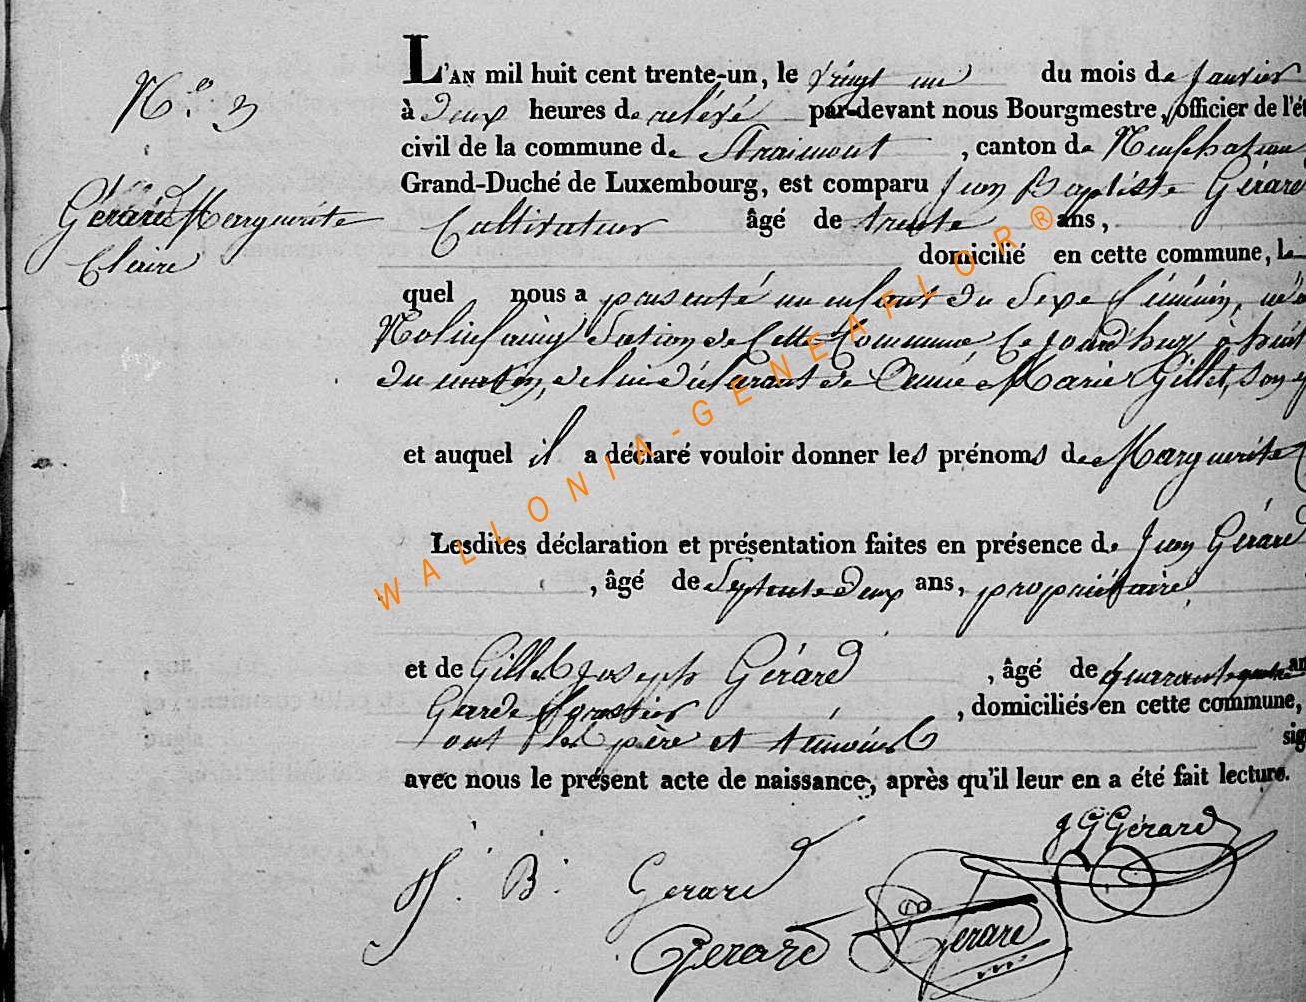 N.º 3
Gérard Marguerite
Claire
L'AN mil huit cent trente-un, le vingt un du mois de Janvier
à deux heures de relevé par-devant nous Bourgmestre, officier de l'ét
civil de la commune de Straimont, canton de Neufchateau
Grand-Duché de Luxembourg, est comparu Jean Baptiste Gérard
Cultivateur âgé de trente ans,
domicilié en cette commune, le
quel nous a présenté un enfant du Sexe féminin, né à
Molinfaing Section de Cette Commune Ce jourd'huy à huit
du matin, de lui déclarant de Anne Marie Gillet, son
et auquel il a déclaré vouloir donner les prénoms de Marguerite
Lesdites déclaration et présentation faites en présence de Jean Gérard
, âgé de Septante deux ans, propriétaire,
et de Gille Joseph Gérard, âgé de quarante quatre an
Garde forestier, domiciliés en cette commune,
ont les père et témoins sig
avec nous le présent acte de naissance, après qu'il leur en a été fait lecture.
J. B. Gerard
J G Gérard
Gerard
Gerard
WALLONIA-GENEAFLOR®